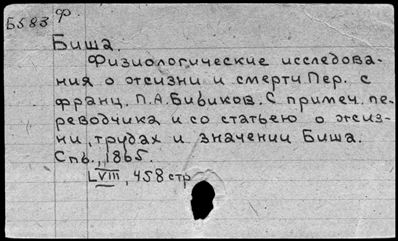 Б583 Ф.
Биша.
Физиологические исследова-
ния о жизни и смерти. Пер. с
франц. П.А. Бибиков. С примеч. пе-
реводчика и со статьею о жиз-
ни, трудах и значении Биша.
Спб., 1865.
LVIII, 458 стр